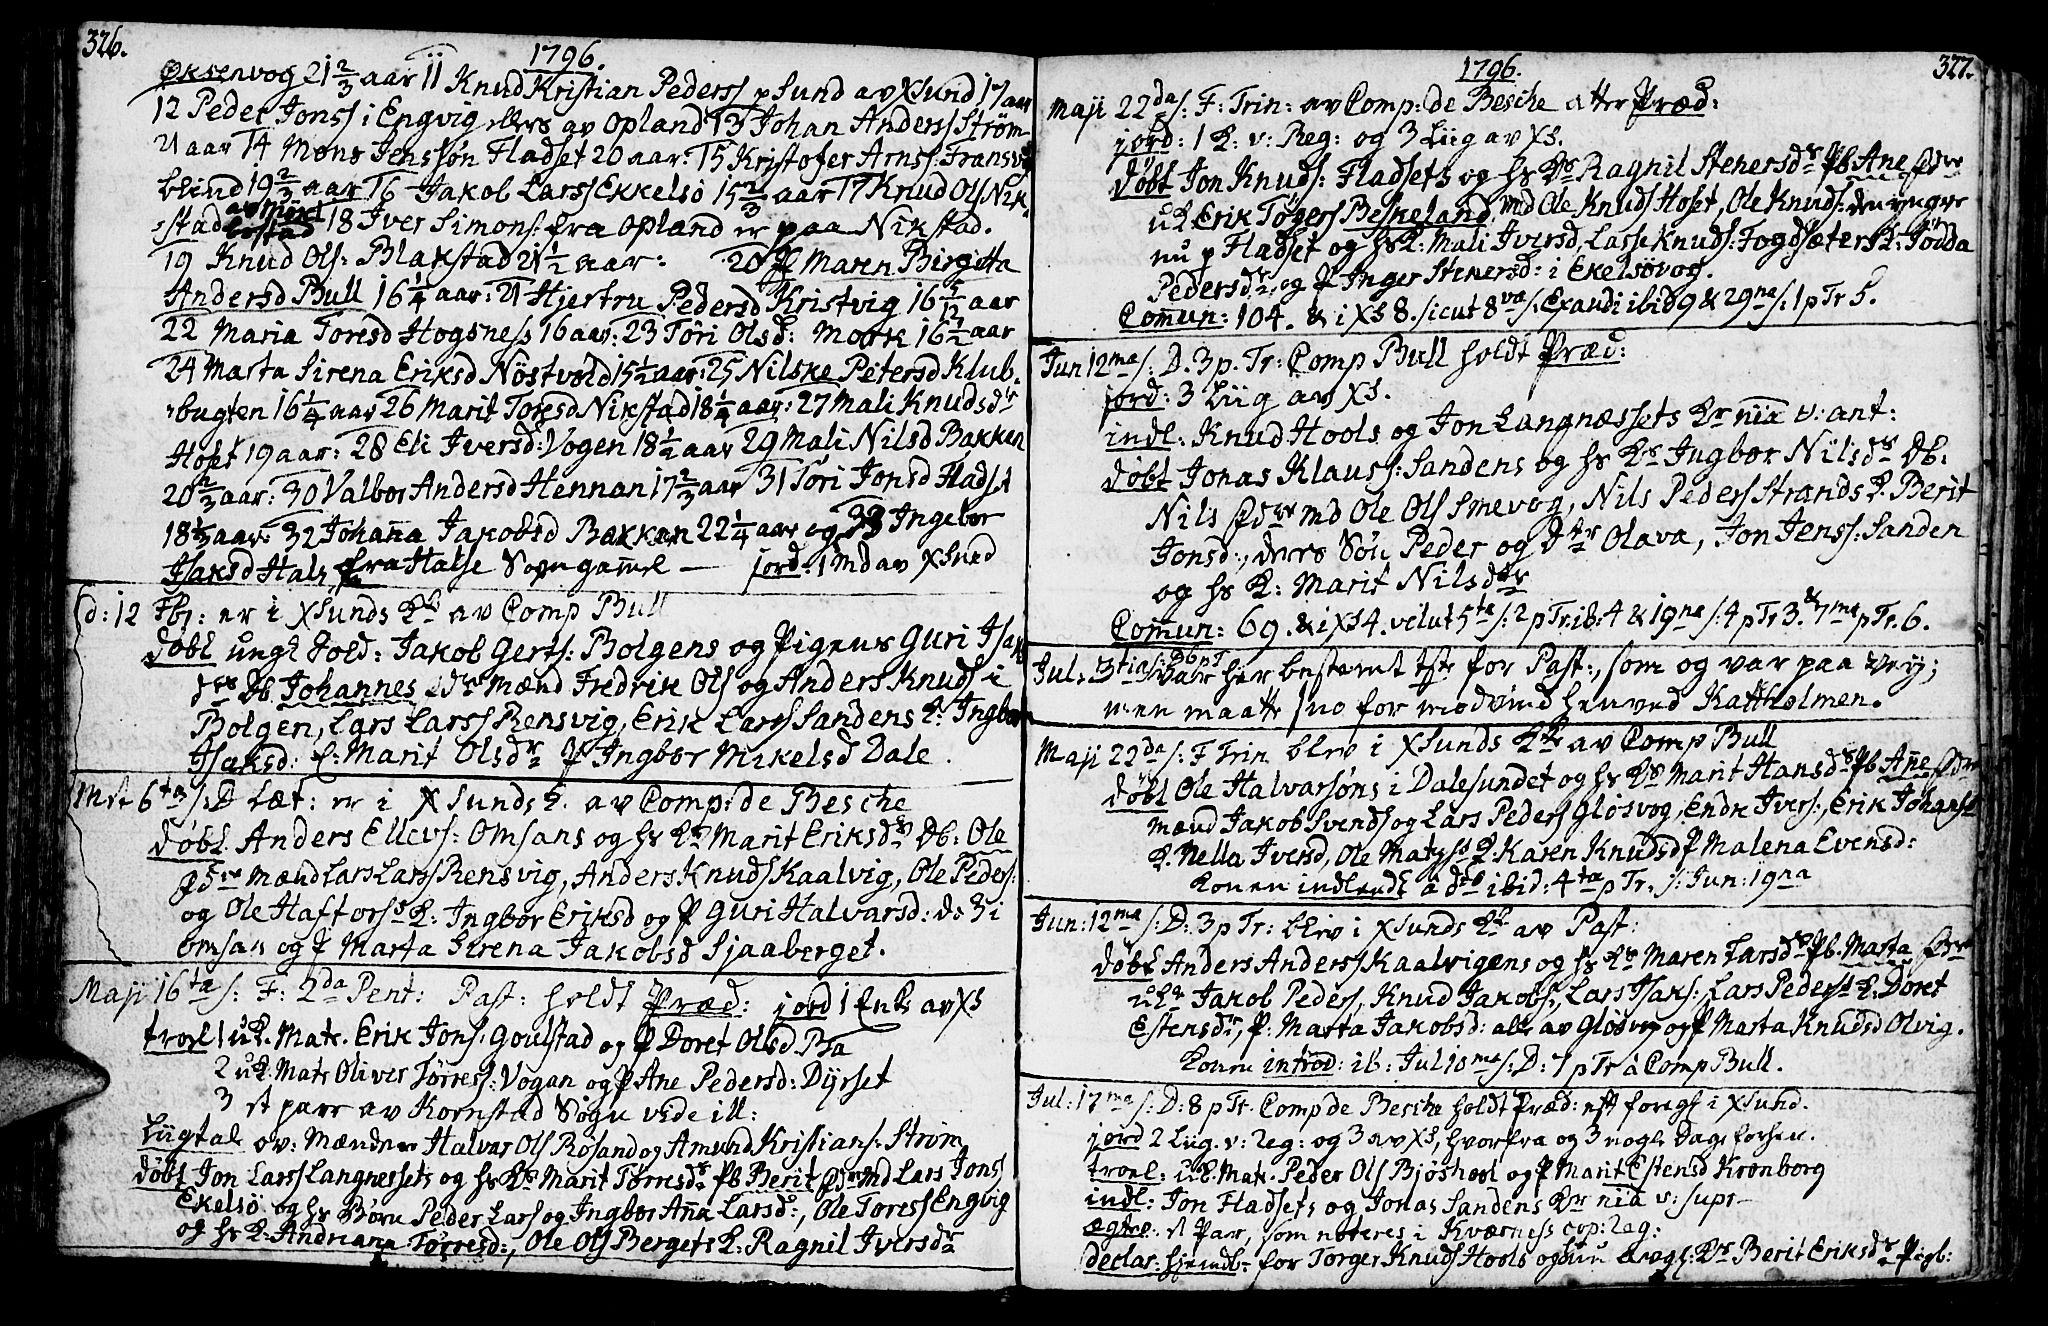 326.
1796.
Øksenvog 21 2/3 aar 11 Knud Kristian Peders p Sund av XSund 17 aar
12 Peder Jonss i Engvig ellers av Opland 13 Johan Anders Strøm
21 aar 14 Mons Jenssøn Fladset 20 aar: 15 Kristofer Arnss:
blind 19 2/3 aar 16 Jakob Larss Ekkelsø 15 2/3 aar 17 Knud Ols Nik-
stad 18 Iver Simons: fra Opland er paa Nikstad.
19 Knud Ols: Blakstad 21 1/2 aar: 20 P Maren Birgitta
Andersd Bull 16 1/4 aar: 21 Hjertru Pedersd Kristvig 16 5/12 aar
22 Maria Toresd Hogsness 16 aar: 23 Tøri Olsd: Mork 16 1/2 aar
24 Marta Sirena Eriksd Nøstvold 15 1/2 aar: 25 Nilske Petersd Klub-
bugten 16 1/4 aar 26 Marit Toresd Nikstad 18 1/4 aar: 27 Mali Knudsdr
Hoset 19 aar: 28 Eli Iversd: Vogen 18 1/2 aar 29 Mali Nilsd Bakken
20 2/3 aar: 30 Valbor Andersd Hennan 17 2/3 aar 31 Tøri Jonsd Fladset
18 1/3 aar: 32 Johanna Jakobsd Bakkan 22 1/4 aar og 33 Ingebor
Isaksd Hals fra Halse Sogn gammel — jord: 1 Md av XSund
d: 12 Fbr: er i XSunds Kk av Comp Bull
døbt ungt Fold: Jakob Gerts: Bolgens og Pigens Guri Isaks
drs Db Johannes Fdre Mænd Fredrik Ols og Anders Knuds i
Bolgen, Lars Larss Rensvig, Erik Larss Sandens K: Ingbor
Isaksd: K: Marit Olsdr P Ingbor Mikelsd Dale.
Mrt 6ta s: D Læt: er i XSunds K. av Comp: de Besche
døbt Anders Ellevs: Omsans og hs Ks Marit Eriksdrs Db: Ole
Fdre Mænd Lars Larss Rensvig, Anders Knuds Kaalvig, Ole Peders:
og Ole Haftorss K: Ingbor Eriksd og P Guri Halvarsd: de 3 i
Omsan og P Marta Serena Jakobsd Sjaaberget.
Maji 16ta s: F: 2da Pent: Past: holdt Præd: jord 1 Enk av XS
trol 1 uK. Mak. Erik Jons: Goulstad og P Doret Olsd Bra
2 uK. Mak Oliver Tørress: Vogan og P Ane Pedersd: Dyrset
3 et parr av Kornstad Sogn vide ill:
Liigtal ov: Mændene Halvar Ols Røsand og Amund Kristians: Strøm
døbt Jon Larss Langnessets og hs Ks Marit Tørresdrs Pb Berit Fdre Md Lars Jons
Ekelsø og hs Børn Peder Lars og Ingbor Anna Larsd:, Ole Toress Engvig
og hs K: Andriana Tørresd:, Ole Ols Bergets K: Ragnil Iversdr
1796.
327.
Maji 22da s: F: Trin: av Comp: de Besche atter Præd:
jord: 1 K: v: Reg: og 3 Liig av XS.
døbt Jon Knuds: Fladsets og hs Ks Ragnil Stenersdrs Pb Ane Fdre
uK Erik Tøgers Beskeland, Md Ole Knuds Hoset, Ole Knuds: den yngre
nu p Fladset og hs K: Mali Iversd, Lars Knuds: Fogdsæters K: Jødda
Pedersdr, og P Inger Stenersd: i Ekelsøvog.
Commun: 104. & i XS 8. sicut 8va s: Exaudi ibid 9 & 29na s: 1 p Tr 5.
Jun 12ma s: D. 3 p. Tr: Comp Bull holdt Præd:
jord: 3 Liig av XS.
indl: Knud Hools og Jon Langnæssets Kr nia v: ant:
døbt Jonas Klauss: Sandens og hs Ks Ingbor Nilsdrs Db:
Nils Fdre Md Ole Ols Smevog, Nils Peders Strands K. Berit
Jonsd:, deres Søn Peder og dtr Olava, Jon Jenss: Sanden
og hs K: Marit Nilsdtr
Commun: 69. & i XS 4. velut 5ta s: 2 p Tr. ib: 4 & 19na s: 4 p Tr 3. & 7ma p Tr. 6.
Jul. 3tia s: D 6 p T var her bestemt tste for Past:, som og var paa Vej;
men maatte sno for modvind henved Kattholmen.
Maji 22da s: F Trin blev i XSunds Kk av Comp Bull
døbt Ole Halvarsøns i Dalesundet og hs Ks Marit Hansdrs Pb Anne Fdre
Mænd Jakob Svends og Lars Peders Gløsvog, Endre Ivers:, Erik Johans:
K. Nella Iversd, Ole Matss K. Karen Knudsd P Malena Evensd:
Konen indledt a ds ibid: 4ta p Tr. s: Jun: 19na
Jun: 12ma s: D: 3 p Tr: blev i XSunds Kk av Past:
døbt Anders Anders Kaalvigens og hs Ks Maren Larsdrs Pb. Marta Fdre
uKe Jakob Peders, Knud Jakobs:, Lars Isaks:, Lars Peders K: Doret
Estensdr, P: Marta Jakobsd: alle av Gløsvog og P Marta Knudsd Olvig.
Konen introd: ib: Jul 10ma s: D: 7 p Tr a Comp Bull.
Jul: 17ma s: D: 8 p Tr. Comp de Besche holdt Præd: eft foregh i XSund.
jord 2 Liig. v: Reg: og 3 av XS, hvorfra og 3 nogle dage forhen.
trol: uK. Mak. Peder Ols Bjøshol og P Marit Estensd Kronborg
indl: Jon Fladsets og Jonas Sandens Kr nia v: supr—
ægtev. et Par, som noteres i Kværness cop: Reg:
declar: hjemdb for Torger Knuds Hools og hu avgl: Ks Berit Eriksdrs Pigb: